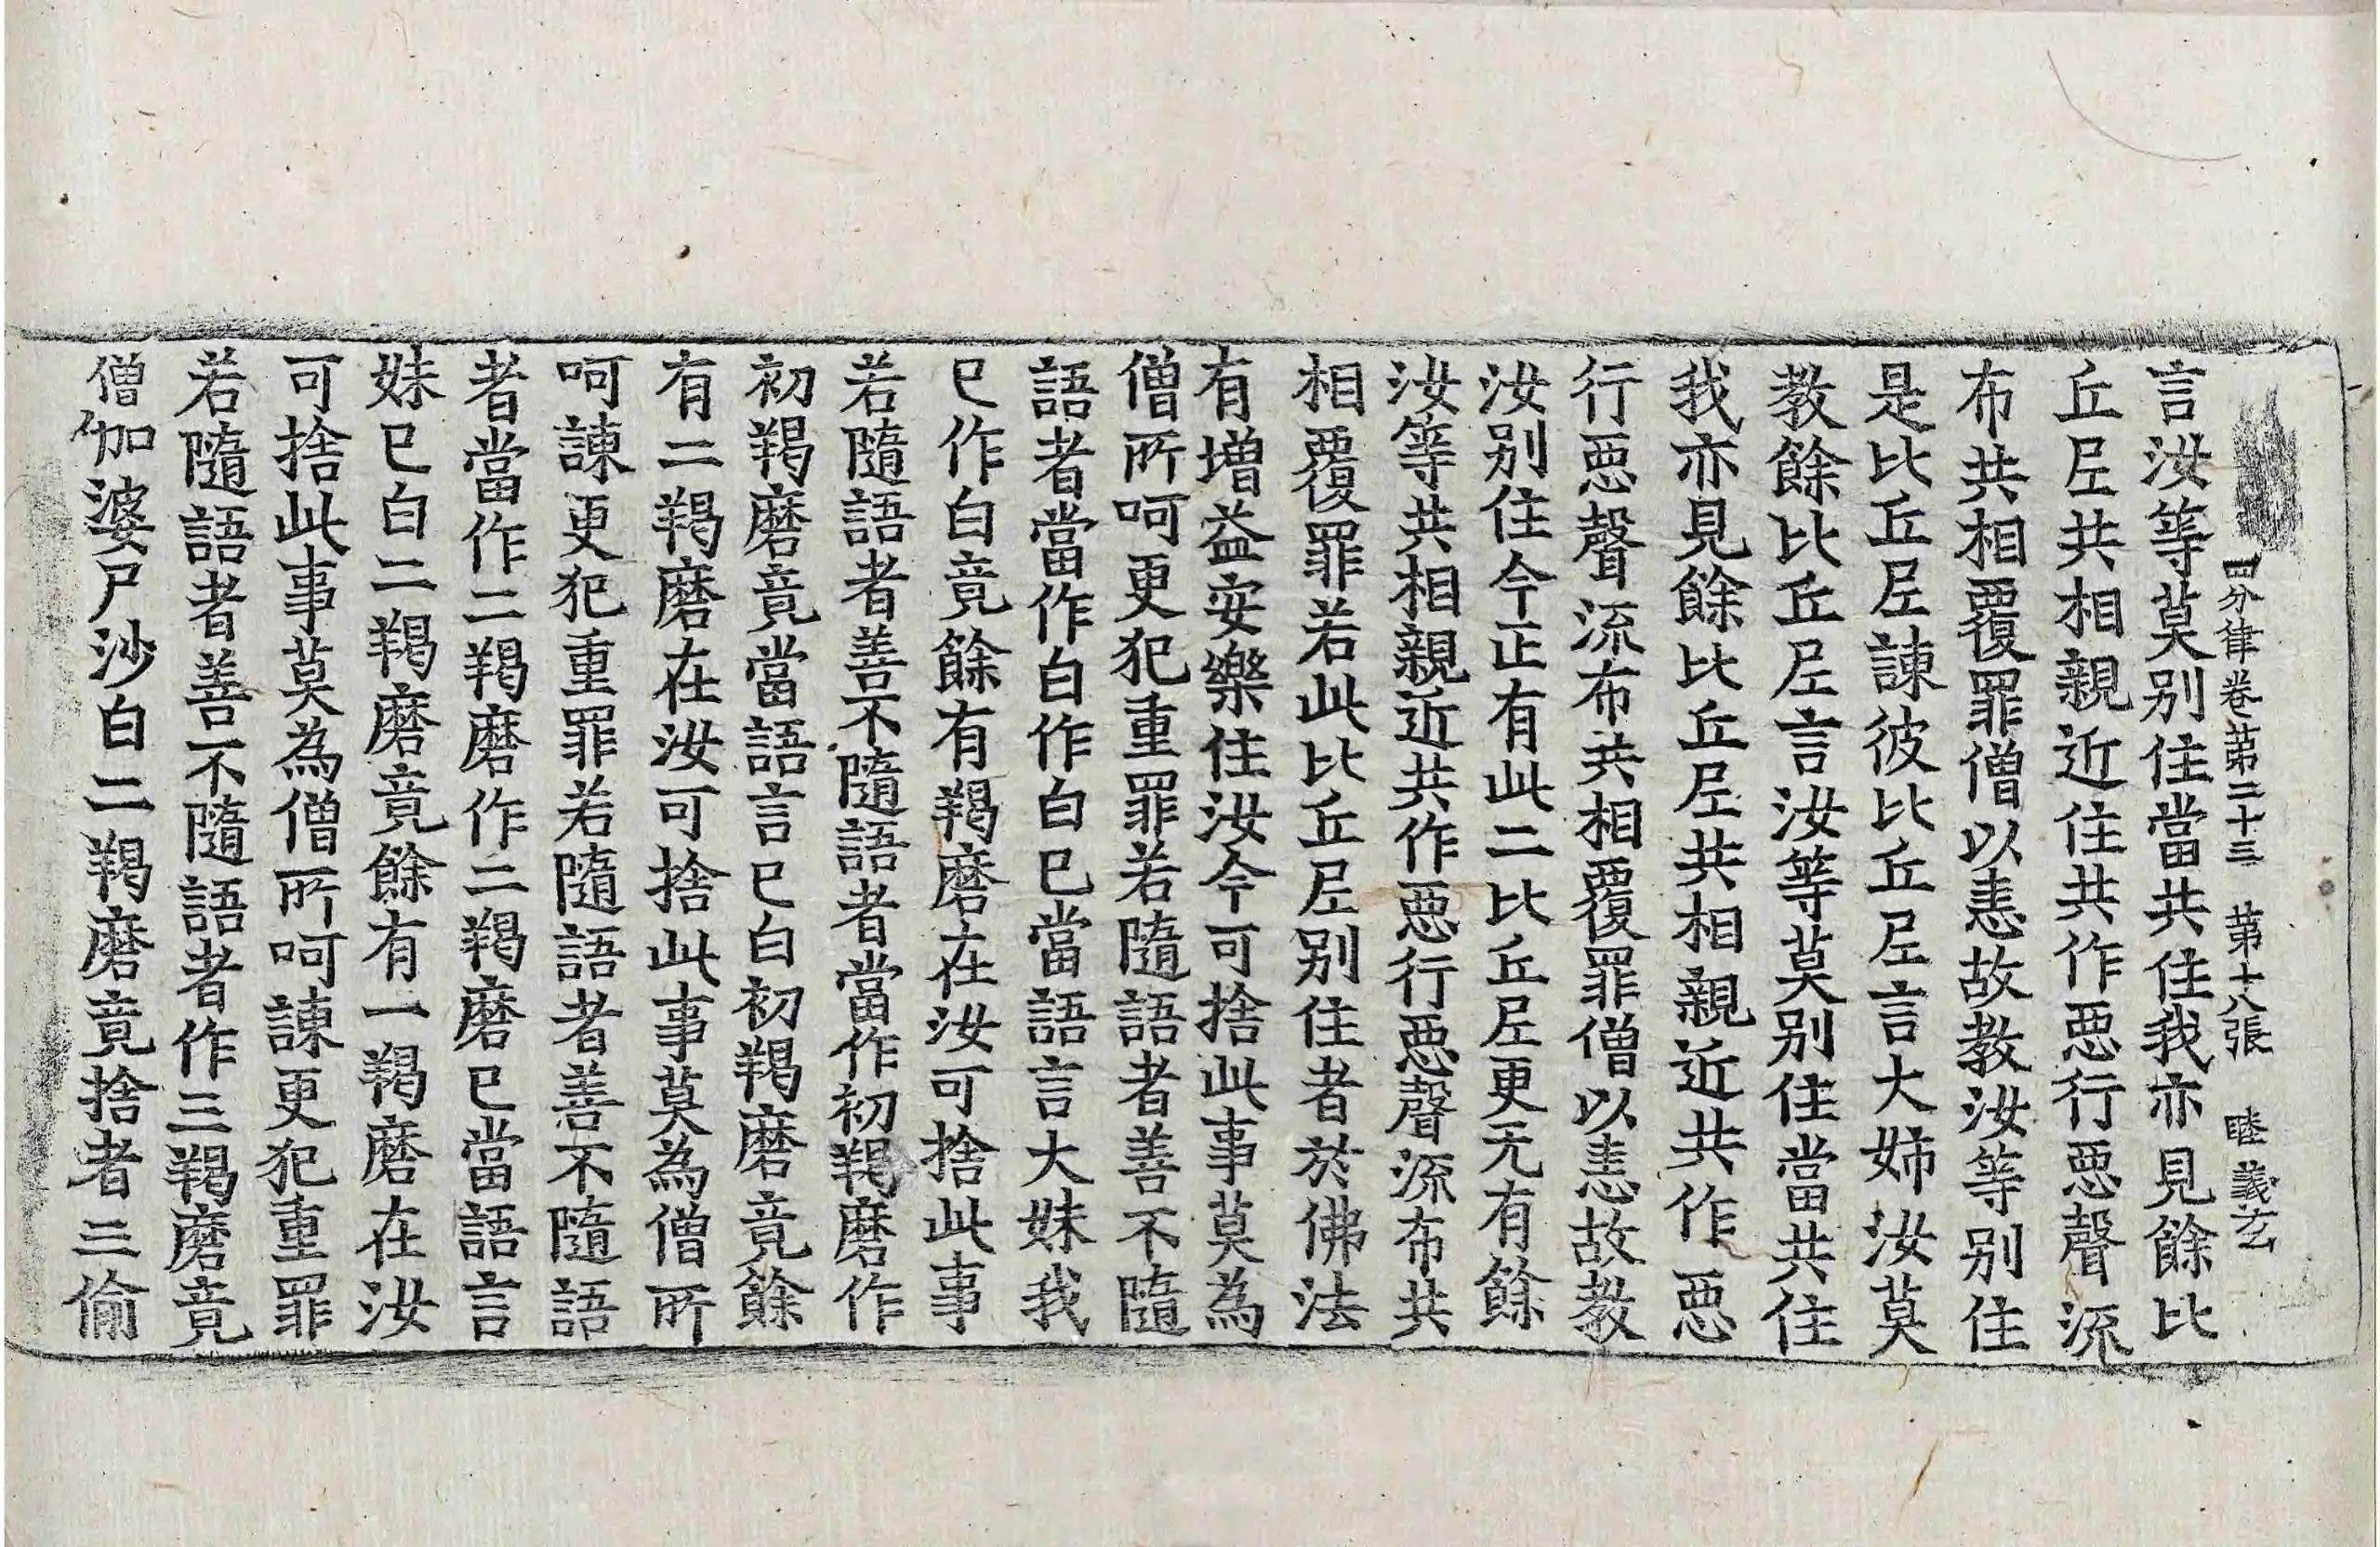 四分律卷第二十三 第十八張 睦 義玄
言汝等莫别住當共住我亦見餘比
丘𡰱共相親近住共作惡行惡聲流
布共相覆罪僧以恚故教汝等别住
是比丘𡰱諫彼比丘𡰱言大姉汝莫
教餘比丘𡰱言汝等莫别住當共住
我亦見餘比丘𡰱共相親近共作惡
行惡聲流布共相覆罪僧以恚故教
汝别住今正有此二比丘𡰱更无有餘
汝等共相親近共作惡行惡聲流布共
相覆罪若此比丘𡰱别住者於佛法
有增益安樂住汝今可捨此事莫為
僧所呵更犯重罪若隨語者善不隨
語者當作白作白已當語言大妹我
已作白竟餘有羯磨在汝可捨此事
若隨語者善不隨語者當作初羯磨作
初羯磨竟當語言已白初羯磨竟餘
有二羯磨在汝可捨此事莫為僧所
呵諫更犯重罪若隨語者善不隨語
者當作二羯磨作二羯磨已當語言
妹已白二羯磨竟餘有一羯磨在汝
可捨此事莫為僧所呵諫更犯重罪
若隨語者善不隨語者作三羯磨竟
僧伽婆尸沙白二羯磨竟捨者三偷